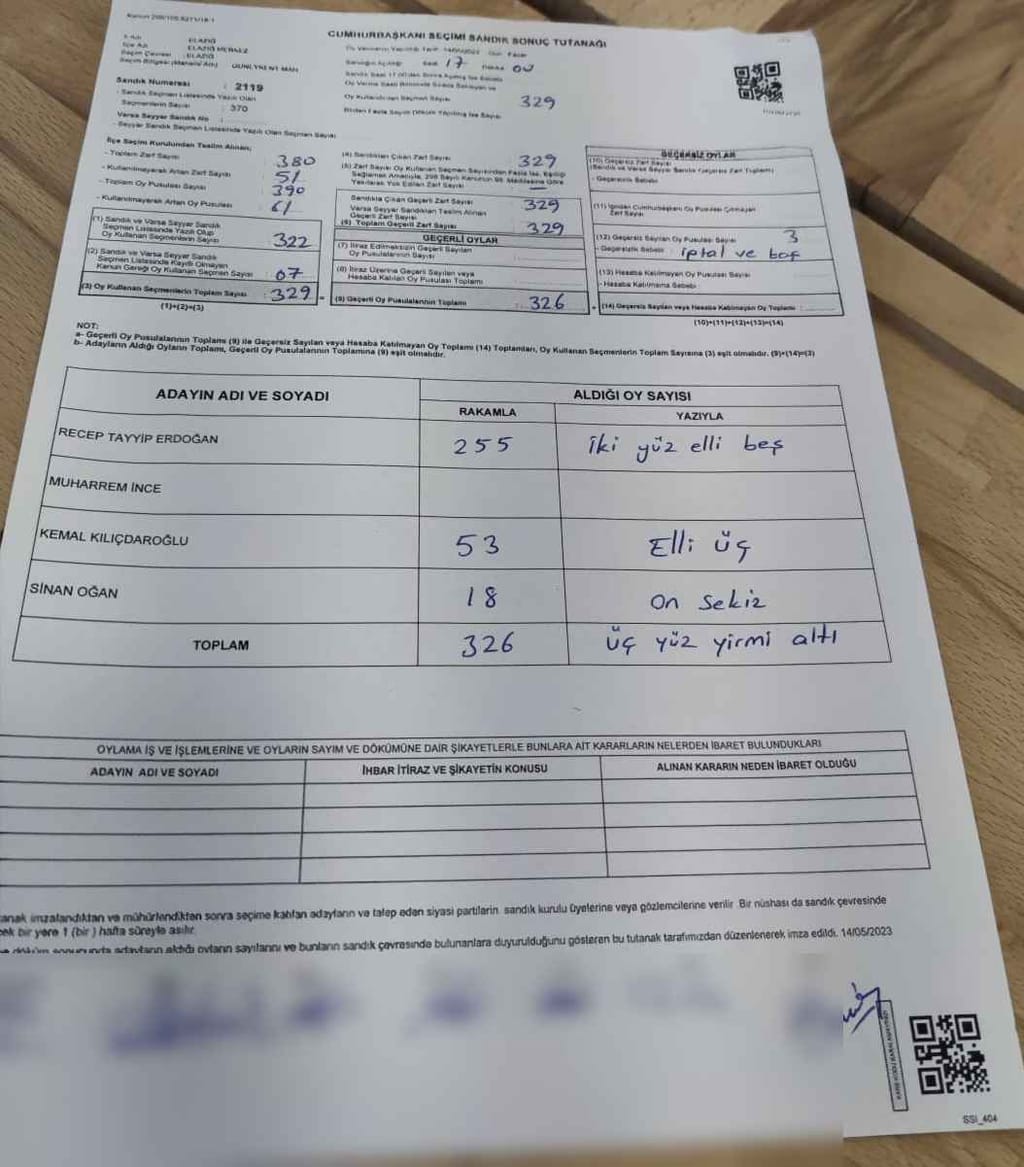 CUMHURBAŞKANI SEÇİMİ SANDIK SONUÇ TUTANAĞI
İlçe Adı : ELAZIĞ MERKEZ
Seçim Çevresi : ELAZIĞ
Sandık Numarası : 2119
- Sandık Seçmen Listesinde Yazılı Olan
Seçmenlerin Sayısı : 370
Varsa Seyyar Sandık No
- Seyyar Sandık Seçmen Listesinde Yazılı Olan Seçmen Sayısı
Saat 17 Dakika 00
Oy Kullandıran Seçmen Sayısı 329
İlçe Seçim Kurulundan Teslim Alınan;
- Toplam Zarf Sayısı 380
- Kullanılmayarak Artan Zarf Sayısı 51
- Toplam Oy Pusulası Sayısı 390
- Kullanılmayarak Artan Oy Pusulası 61
(1) Sandık ve Varsa Seyyar Sandık
Seçmen Listesinde Yazılı Olup
Oy Kullanan Seçmenlerin Sayısı : 322
(2) Sandık ve Varsa Seyyar Sandık
Seçmen Listesinde Kayıtlı Olmayan
Kanun Gereği Oy Kullanan Seçmen Sayısı : 07
(3) Oy Kullanan Seçmenlerin Toplam Sayısı : 329 =
(1)+(2)=(3)
(4) Sandıktan Çıkan Zarf Sayısı 329
(5) Zarf Sayısı Oy Kullanan Seçmen Sayısından Fazla İse, Eşitliği
Sağlamak Amacıyla, 298 Sayılı Kanunun 98. Maddesine Göre
Yakılarak Yok Edilen Zarf Sayısı —
Sandıkta Çıkan Geçerli Zarf Sayısı 329
Varsa Seyyar Sandıktan Teslim Alınan
Geçerli Zarf Sayısı
(6) Toplam Geçerli Zarf Sayısı 329
GEÇERLİ OYLAR
(7) İtiraz Edilmeksizin Geçerli Sayılan
Oy Pusulalarının Sayısı
(8) İtiraz Üzerine Geçerli Sayılan veya
Hesaba Katılan Oy Pusulası Toplamı
(9) Geçerli Oy Pusulalarının Toplamı : 326
GEÇERSİZ OYLAR
(10) Geçersiz Zarf Sayısı
(Sandık ve Varsa Seyyar Sandık Geçersiz Zarf Toplamı)
- Geçersizlik Sebebi
(11) İçinden Cumhurbaşkanı Oy Pusulası Çıkmayan
Zarf Sayısı
(12) Geçersiz Sayılan Oy Pusulası Sayısı 3
- Geçersizlik Sebebi : iptal ve boş
(13) Hesaba Katılmayan Oy Pusulası Sayısı
- Hesaba Katılmama Sebebi
+ (14) Geçersiz Sayılan veya Hesaba Katılmayan Oy Toplamı :
(10)+(11)+(12)+(13)=(14)
NOT:
a- Geçerli Oy Pusulalarının Toplamı (9) ile Geçersiz Sayılan veya Hesaba Katılmayan Oy Toplamı (14) Toplamları, Oy Kullanan Seçmenlerin Toplam Sayısına (3) eşit olmalıdır. (9)+(14)=(3)
b- Adayların Aldığı Oyların Toplamı, Geçerli Oy Pusulalarının Toplamına (9) eşit olmalıdır.
ADAYIN ADI VE SOYADI ALDIĞI OY SAYISI
RAKAMLA YAZIYLA
RECEP TAYYİP ERDOĞAN 255 İki yüz elli beş
MUHARREM İNCE
KEMAL KILIÇDAROĞLU 53 Elli üç
SİNAN OĞAN 18 On sekiz
TOPLAM 326 üç yüz yirmi altı
OYLAMA İŞ VE İŞLEMLERİNE VE OYLARIN SAYIM VE DÖKÜMÜNE DAİR ŞİKAYETLERLE BUNLARA AİT KARARLARIN NELERDEN İBARET BULUNDUKLARI
ADAYIN ADI VE SOYADI İHBAR İTİRAZ VE ŞİKAYETİN KONUSU ALINAN KARARIN NEDEN İBARET OLDUĞU
anak imzalandıktan ve mühürlendikten sonra seçime katılan adayların ve talep eden siyasi partilerin. sandık kurulu üyelerine veya gözlemcilerine verilir. Bir nüshası da sandık çevresinde
ek bir yere 1 (bir ) hafta süreyle asılır.
döküm sonucunda adayların aldığı oyların sayılarını ve bunların sandık çevresinde bulunanlara duyurulduğunu gösteren bu tutanak tarafımızdan düzenlenerek imza edildi. 14/05/2023
SSI_404